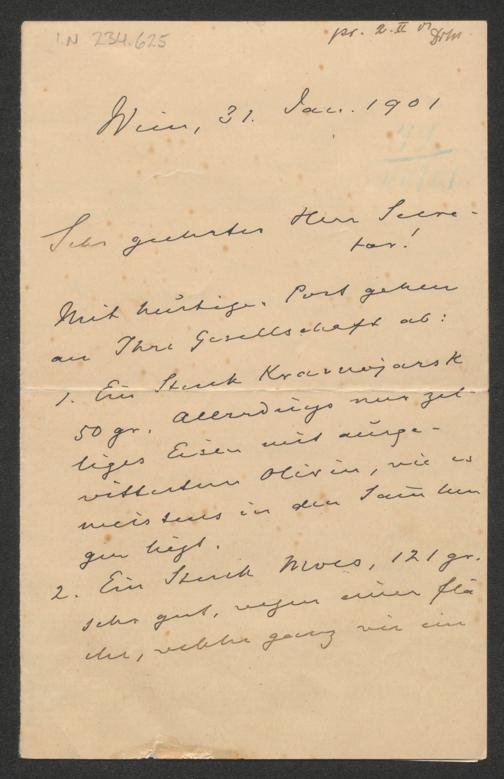 I.N 234.625
pr. 2. II 01
Wien, 31. Jan. 1901
Sehr geehrter Herr Secre-
tär!
Mit heutige. Post gehen
an Ihre Gesellschaft ab:
1. Ein Stück Krasnojarsk
50 gr. allerdings nur zel-
liges Eisen mit ausge-
wittertem Olivin, wie es
meistens in den Samlun
gen liegt.
2. Ein Stück Mocs, 121 gr.
sehr gut, wegen einer Flä
che, welche ganz wie ein